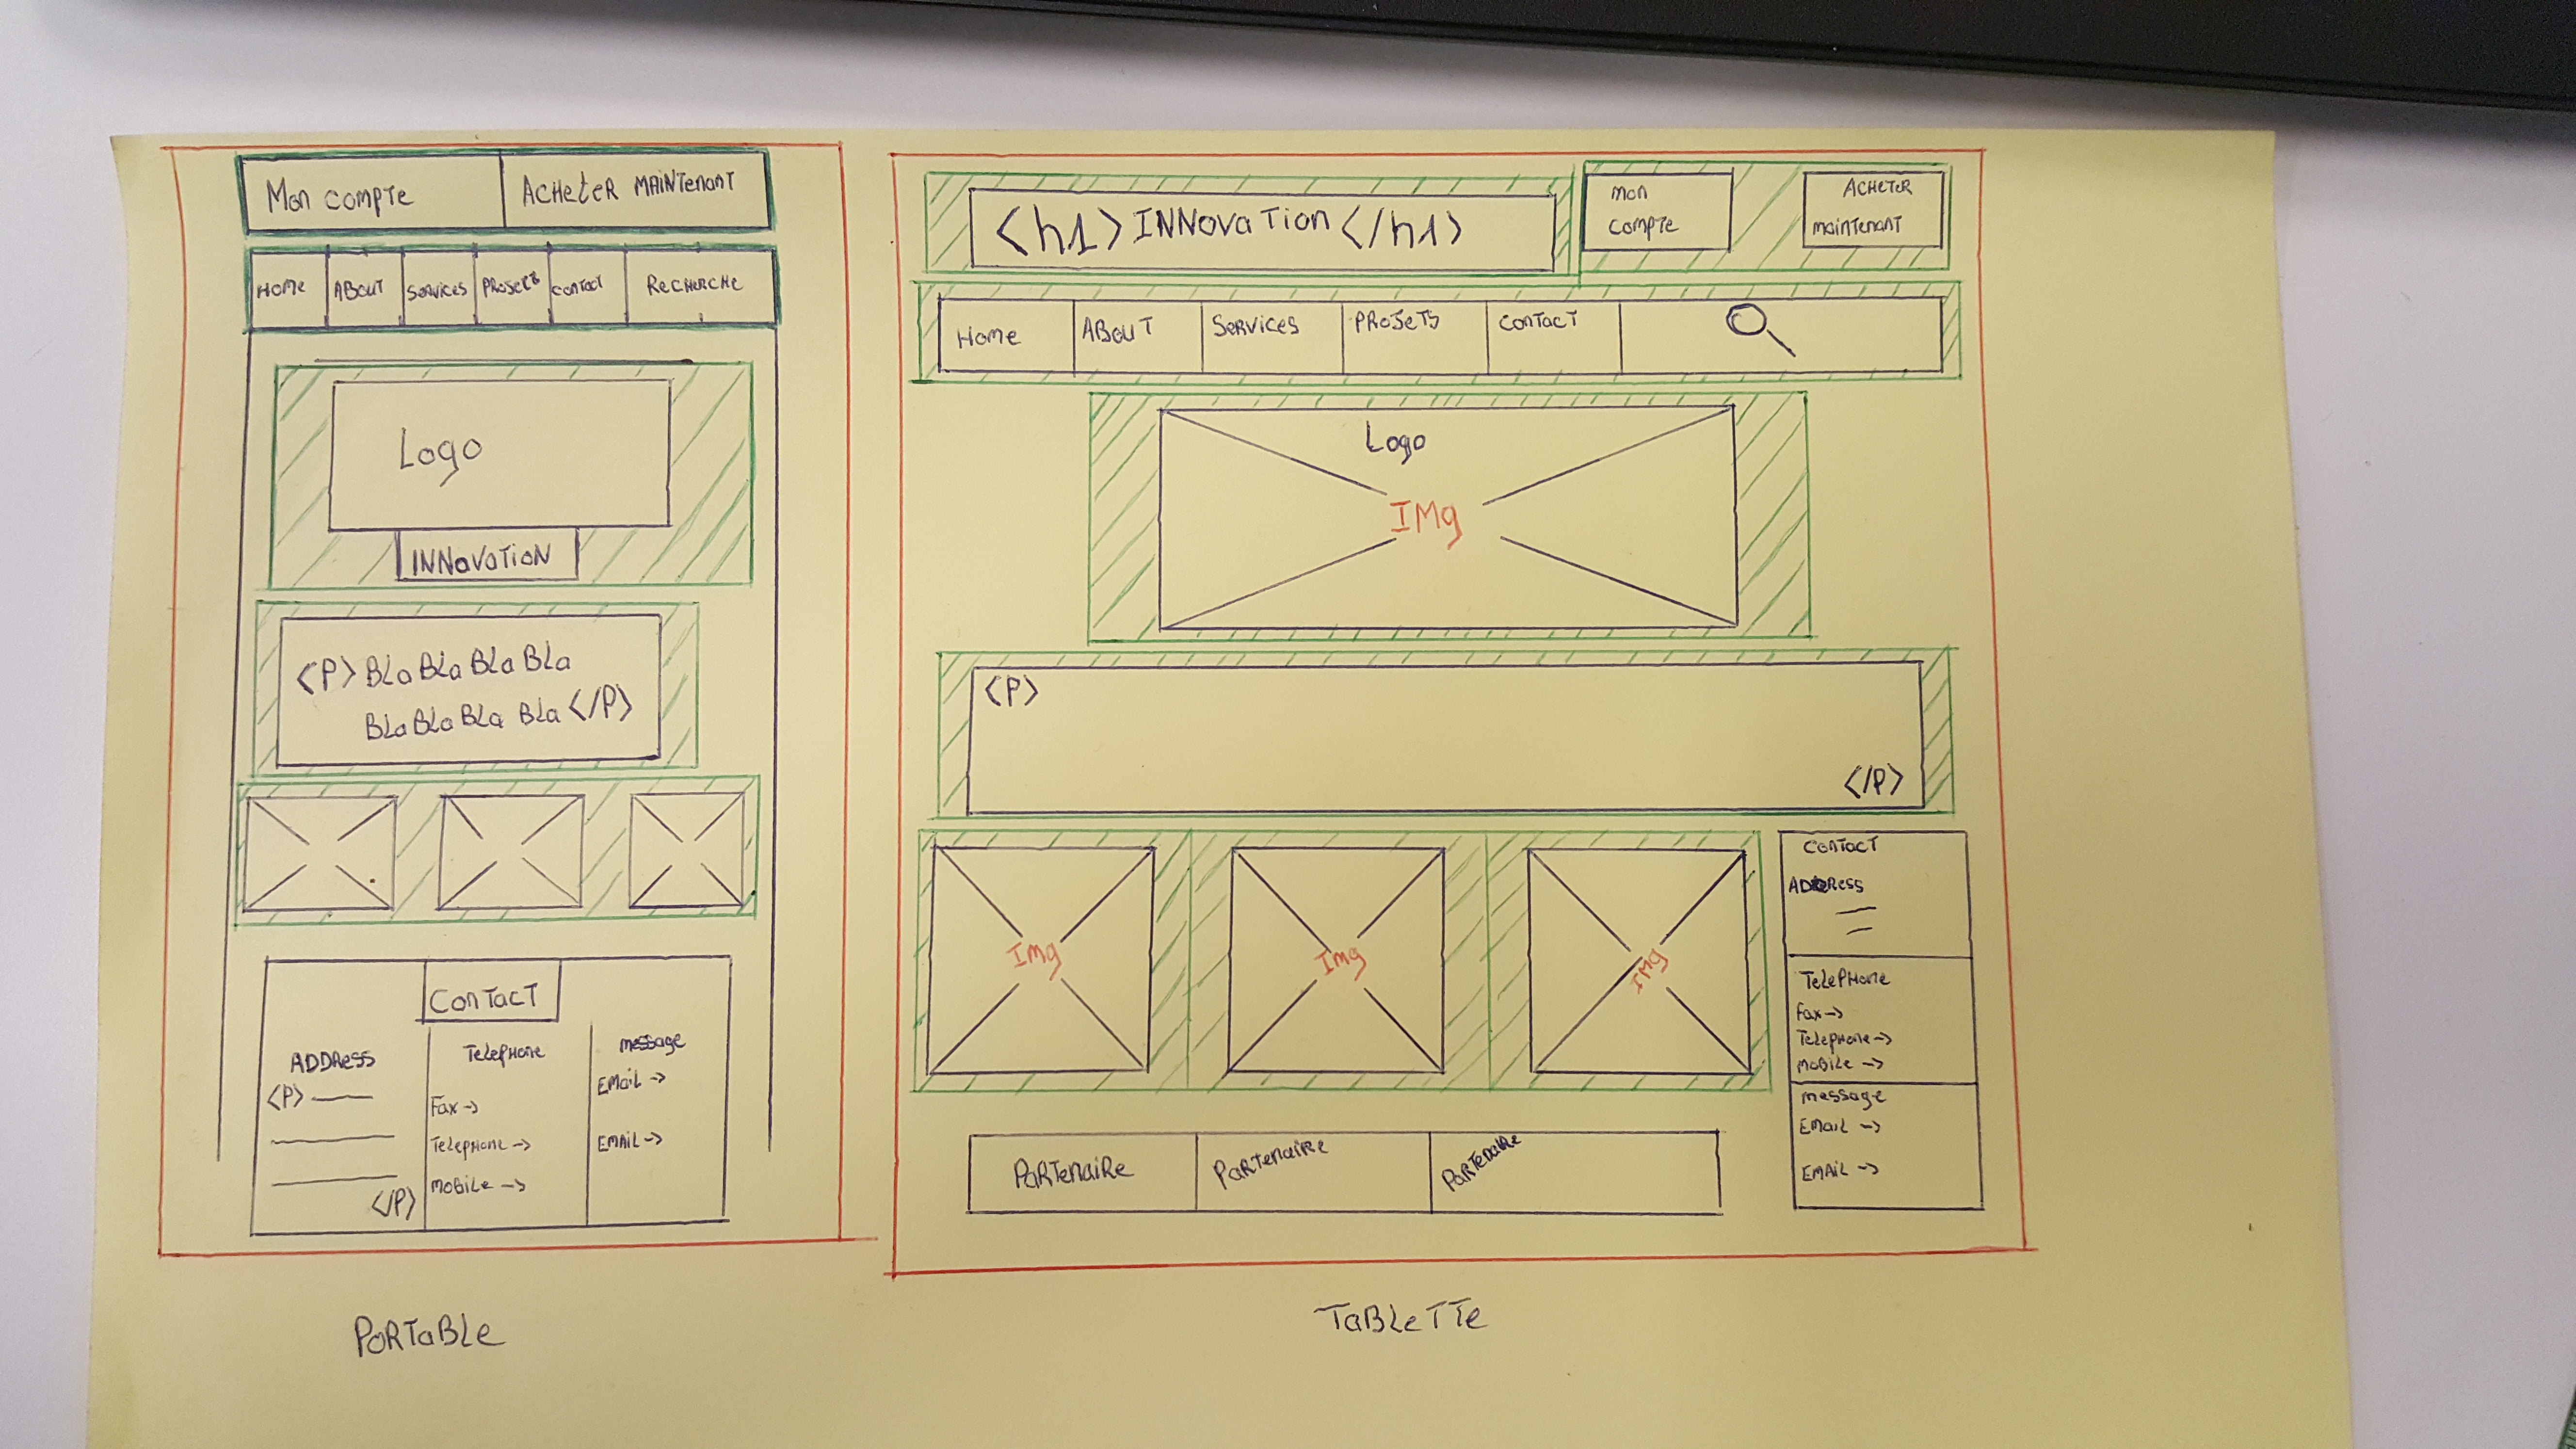 Mon compte
ACHeTeR MAINTenanT
Home
ABouT
Services
PRoJeTs
contact
ReCHeRCHe
Logo
INNovaTioN
<P> BLa BLa BLa BLa
BLa BLa BLa BLa </P>
ConTacT
ADDRess
<P>
</P>
TelepHone
Fax ->
TelepHone ->
MoBiLe ->
message
EMaiL ->
EMAiL ->
PoRTaBLe
<h1> INNovaTion </h1>
mon
compTe
ACHeTeR
mainTenanT
Home
ABouT
Services
PRoJeTs
ConTacT
Logo
IMg
<P>
</P>
IMg
IMg
IMg
ConTacT
ADRess
TelepHone
Fax ->
TelepHone ->
MoBiLe ->
message
EMaiL ->
EMAiL ->
PaRTenaiRe
PaRTenaiRe
PaRTenaiRe
TaBLeTTe